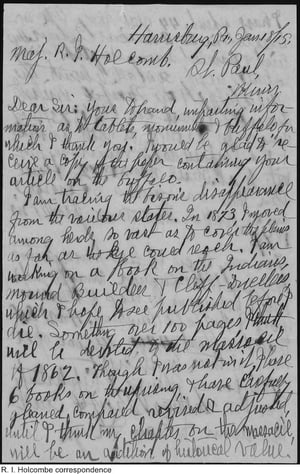 Harrisburg, Pa, Jan 18/15.
Maj. R. I. Holcomb.
St. Paul,
Minn
Dear Sir: Yours to hand, imparting infor
mation as to tablets, monuments & buffalo for
which I thank you. I would be glad to re
ceive a copy of the paper containing your
article on the buffalo.
I am tracing the bison's disappearance
from the various states. In 1873 I moved
among herds so vast as to cover the plains
as far as the eye could reach. I am
working on a book on the Indians,
Mound Builders & Cliff-Dwellers
which I hope to see published before I
die. Something over 100 pages
will be devoted to the massacre
of 1862. Though I was not in it, I have
6 books on the uprising & have carefully
gleaned, compared, revised & adjusted
until I think my chapter on the massacre
will be an addition of historical value.
R. I. Holcombe correspondence